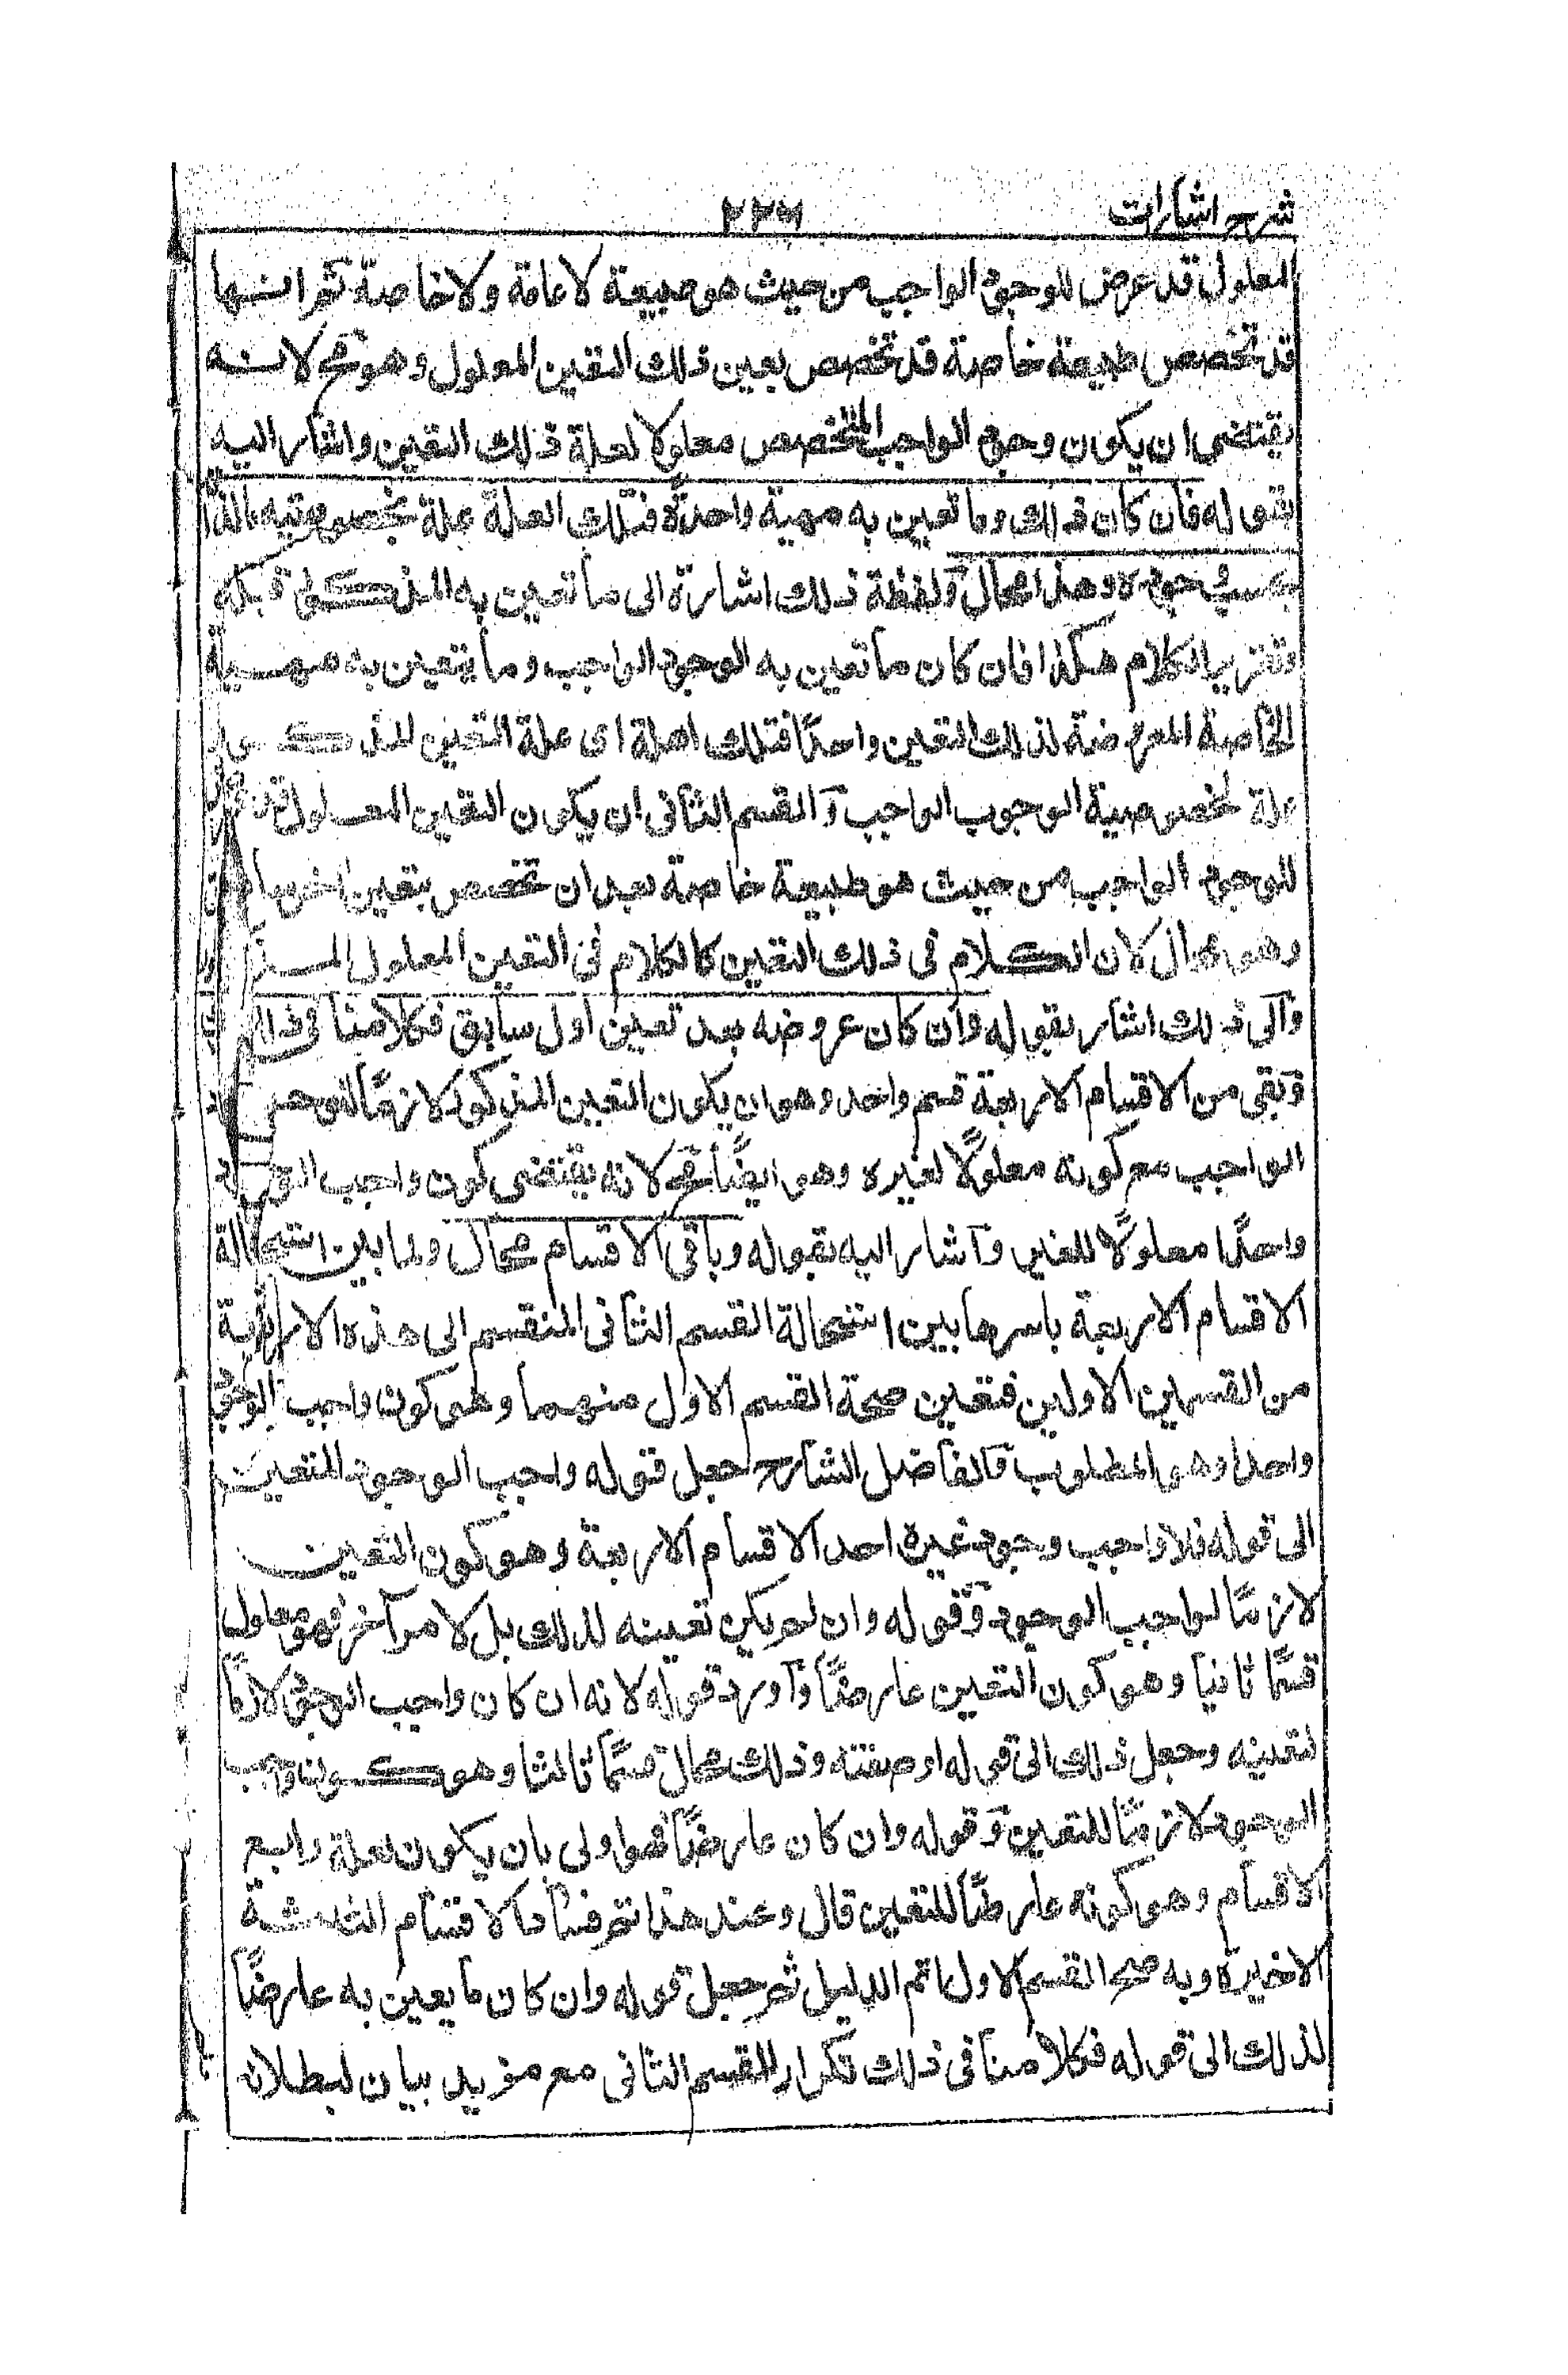 شرح اشارات
٢٢٦
المعلول قد عرض للوجود الواجب من حيث هو طبيعة لا عامة ولا خاصة ثم انها
قد تخصص طبيعة خاصة قد تخصص بعين ذلك التعين المعلول وهو مح لانه
يقتضى ان يكون وجود الواجب المتخصص معلولا لعلة ذلك التعين واشار اليه
بقوله فان كان ذلك وما تعين به مهية واحدة فتلك العلة علة لخصوصية ما لذاته
يجب وجوده وهذا محال ولفظة ذلك اشارة الى ما تعين به المذكور قبله
وتقرير الكلام هكذا فان كان ما تعين به الوجود الواجب وما يتعين به مهية
الخاصة المعروضة لذلك التعين واحدا فتلك العلة اى علة التعين المذكور
علة لخصوصية الوجوب الواجب والقسم الثانى ان يكون التعين المعلول قد عرض
للوجود الواجب من حيث هو طبيعة خاصة بعد ان تخصص بتعين اخر سابق
وهو محال لان الكلام فى ذلك التعين كالكلام فى التعين المعلول
والى ذلك اشار بقوله وان كان عروضه بعد تعين اول سابق فكلامنا فى ذلك
وبقى من الاقسام الاربعة قسم واحد وهو ان يكون التعين المذكور لازما للوجود
الواجب مع كونه معلولا لغيره وهو ايضا مح لانه يقتضى كون واجب الوجود
واحدا معلولا للغير واشار اليه بقوله وباقى الاقسام محال ولما بين استحالة
الاقسام الاربعة باسرها بين استحالة القسم الثانى المنقسم الى هذه الاربعة
من القسمين الاولين فتعين صحة القسم الاول منهما وهى كون واجب الوجود
واحدا وهو المطلوب فالفاضل الشارح جعل قوله واجب الوجود المتعين
الى قوله فلا واجب وجود غيره احد الاقسام الاربعة وهو كون التعين
لازما لواجب الوجود وقوله وان لم يكن تعينه لذلك بل لامر آخر فهو معلول
قسما ثانيا وهو كون التعين عارضا واورد قوله لانه ان كان واجب الوجود لازما
لتعينه وجعل ذلك الى قوله او صفته وذلك محال قسما ثالثا وهو كون واجب
الوجود لازما للتعين وقوله وان كان عارضا فهو اولى بان يكون لعلة رابع
الاقسام وهو كونه عارضا للتعين قال وعند هذا الاقسام الثلثة
الاخيرة وبه صح القسم الاول تم الدليل ثم جعل قوله وان كان ما يعين به عارضا
لذلك الى قوله فكلامنا فى ذلك تكرار للقسم الثانى مع مزيد بيان لبطلانه